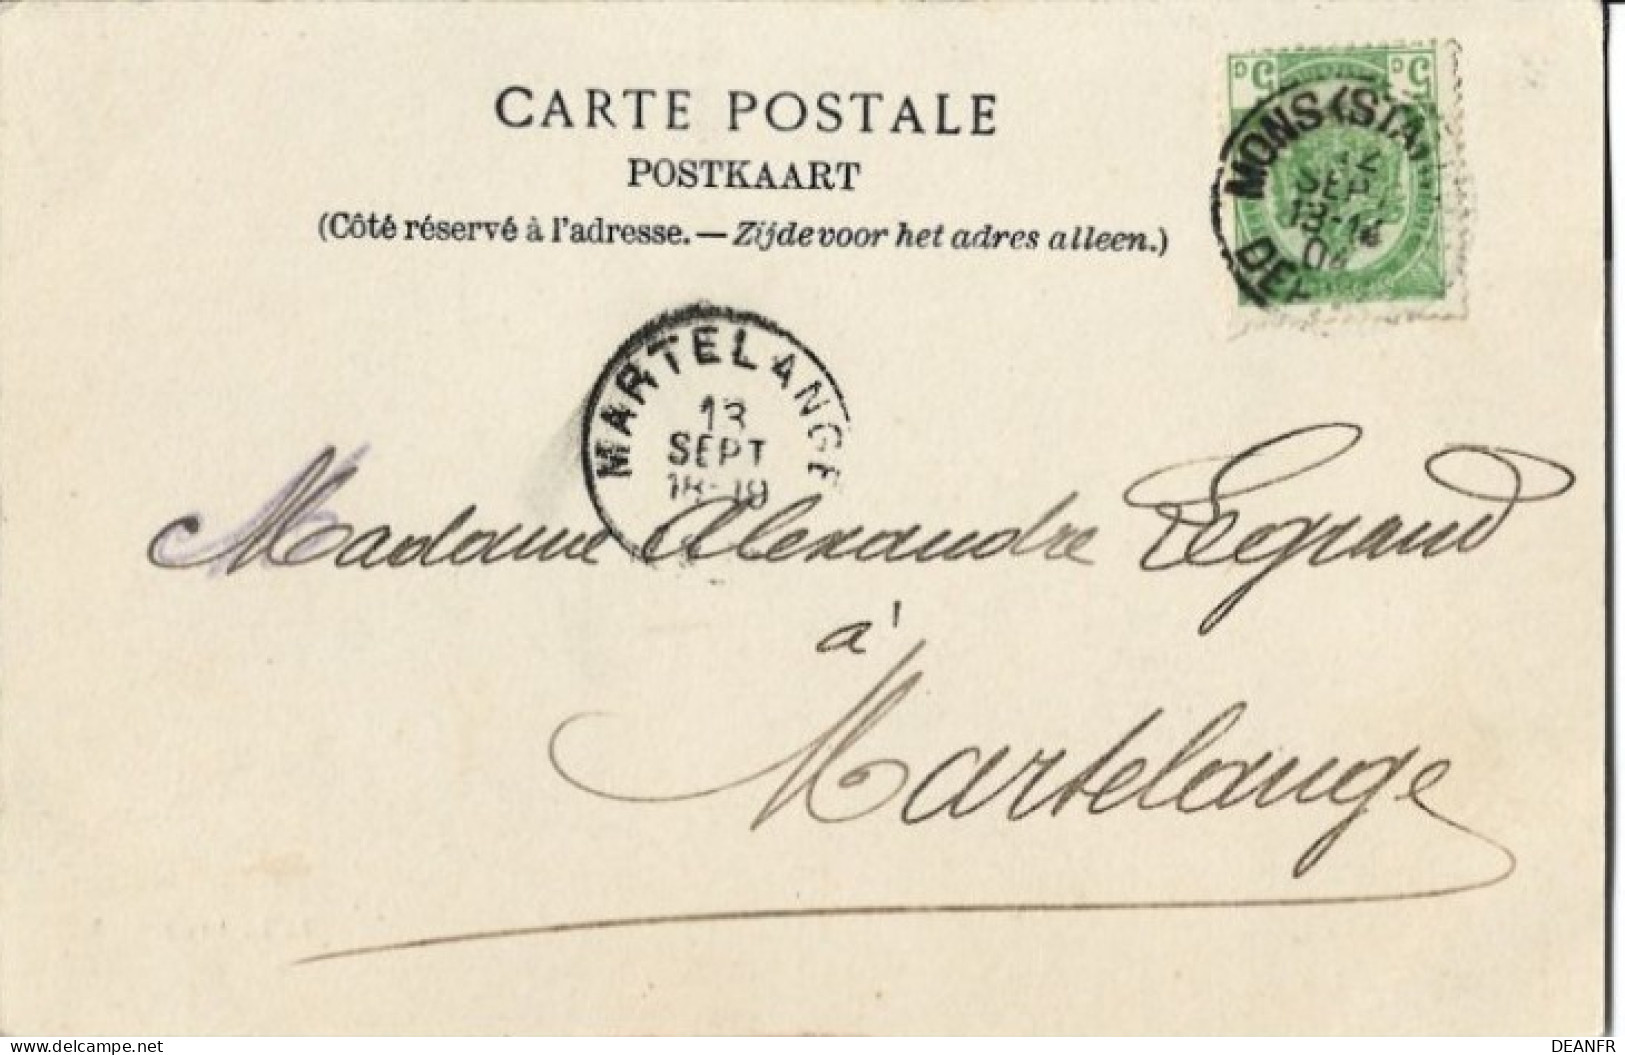 CARTE POSTALE
POSTKAART
(Côté réservé à l'adresse.—Zijde voor het adres alleen.)
5 C 5 C
MONS (STA
12
SEPT
13-14
04
DEP
MARTELANGE
13
SEPT
18-19
Madame Alexandre Legrand
à
Martelange
delcampe.net
DEANFR